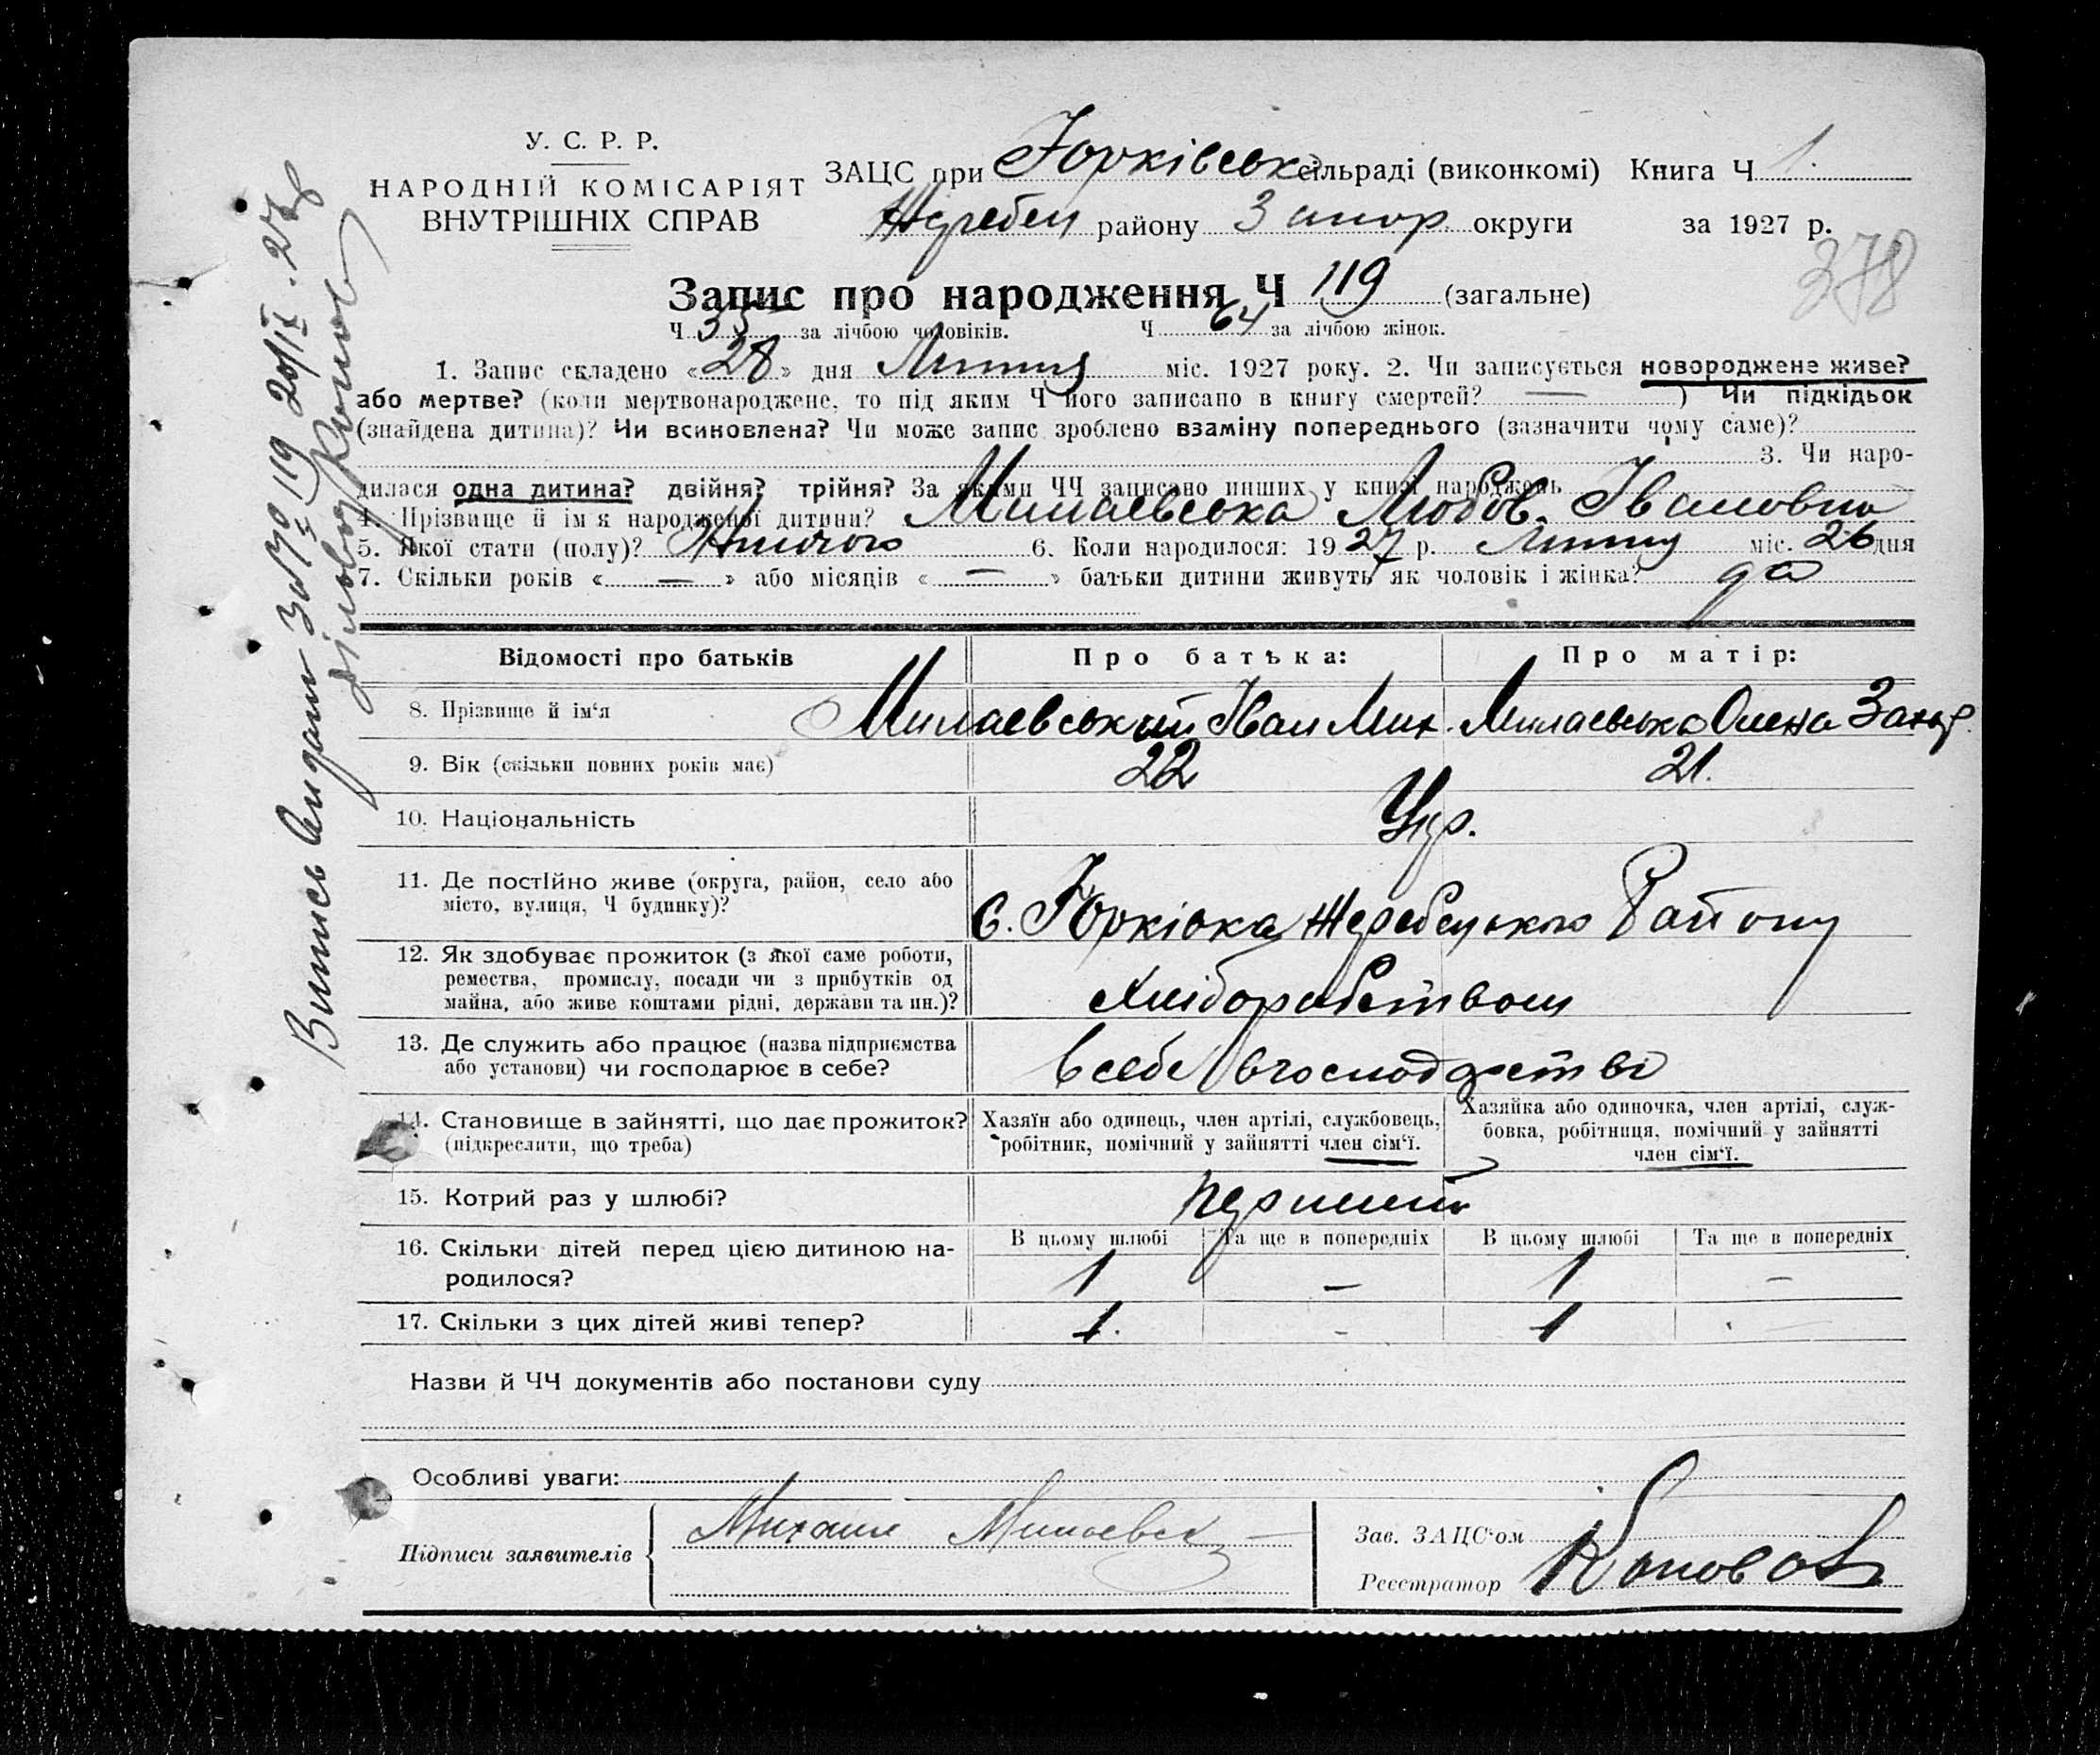 У. С. Р. Р.
НАРОДНІЙ КОМІСАРІЯТ
ВНУТРІШНІХ СПРАВ
ЗАЦС при Юрківськ сільраді (виконкомі) Книга Ч 1.
Жеребец району Запор. округи за 1927 р.
378
Запис про народження Ч 119 (загальне)
Ч 55 за лічбою чоловіків. Ч 64 за лічбою жінок.
1. Запис складено «28» дня Липня міс. 1927 року. 2. Чи записується новороджене живе?
або мертве? (коли мертвонароджене, то під яким Ч його записано в книгу смертей? —) Чи підкідьок
(знайдена дитина)? Чи всиновлена? Чи може запис зроблено взаміну попереднього (зазначити чому саме)?
3. Чи наро-
дилася одна дитина? двійня? трійня? За якими ЧЧ записано инших у книзі народжень
4. Прізвище й ім'я народженої дитини? Милаевська Любов Івановна
5. Якої стати (полу)? Жіночого 6. Коли народилося: 1927 р. Липня міс. 26 дня
7. Скільки років «—» або місяців «—» батьки дитини живуть як чоловік і жінка? да
Відомості про батьків Про батька: Про матір:
8. Прізвище й ім'я Милаевський Іван Мих. Милаевська Олена Захар.
9. Вік (скільки повних років має) 22 21.
10. Національність Укр.
11. Де постійно живе (округа, район, село або
місто, вулиця, Ч будинку)? с. Юрківка Жеребецького Району
12. Як здобуває прожиток (з якої саме роботи,
ремества, промислу, посади чи з прибутків од
майна, або живе коштами рідні, держави та ин.)? Хліборобством
13. Де служить або працює (назва підприємства
або установи) чи господарює в себе? в себе в господарстві
14. Становище в зайнятті, що дає прожиток? Хазяїн або одинець, член артілі, службовець, Хазяйка або одиночка, член артілі, служ-
(підкреслити, що треба) робітник, помічний у зайнятті член сім'ї. бовка, робітниця, помічний у зайнятті
член сім'ї.
15. Котрий раз у шлюбі? перший
16. Скільки дітей перед цією дитиною на- В цьому шлюбі Та ще в попередніх В цьому шлюбі Та ще в попередніх
родилося? 1 — 1 —
17. Скільки з цих дітей живі тепер? 1. - 1
Назви й ЧЧ документів або постанови суду
Особливі уваги:
Підписи заявителів Михаил Милаевск
Зав. ЗАЦС'ом
Реєстратор Коновал
Випись Видана За № 119 20/IX.27р
Діловод